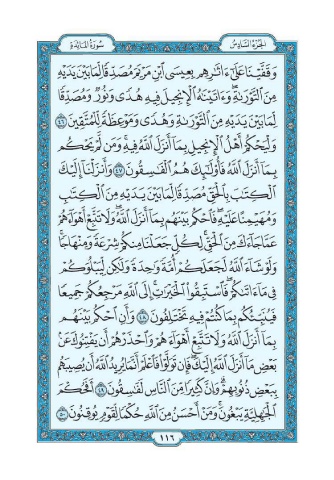 الجزء السادس سورة المائدة
وَقَفَّيْنَا عَلَىٰ ءَاثَٰرِهِم بِعِيسَى ٱبْنِ مَرْيَمَ مُصَدِّقًا لِّمَا بَيْنَ يَدَيْهِ
مِنَ ٱلتَّوْرَىٰةِ ۖ وَءَاتَيْنَٰهُ ٱلْإِنجِيلَ فِيهِ هُدًى وَنُورٌ وَمُصَدِّقًا
لِّمَا بَيْنَ يَدَيْهِ مِنَ ٱلتَّوْرَىٰةِ وَهُدًى وَمَوْعِظَةً لِّلْمُتَّقِينَ ٤٦
وَلْيَحْكُمْ أَهْلُ ٱلْإِنجِيلِ بِمَآ أَنزَلَ ٱللَّهُ فِيهِ ۚ وَمَن لَّمْ يَحْكُم
بِمَآ أَنزَلَ ٱللَّهُ فَأُو۟لَٰٓئِكَ هُمُ ٱلْفَٰسِقُونَ ٤٧ وَأَنزَلْنَآ إِلَيْكَ
ٱلْكِتَٰبَ بِٱلْحَقِّ مُصَدِّقًا لِّمَا بَيْنَ يَدَيْهِ مِنَ ٱلْكِتَٰبِ
وَمُهَيْمِنًا عَلَيْهِ ۖ فَٱحْكُم بَيْنَهُم بِمَآ أَنزَلَ ٱللَّهُ ۖ وَلَا تَتَّبِعْ أَهْوَآءَهُمْ
عَمَّا جَآءَكَ مِنَ ٱلْحَقِّ ۚ لِكُلٍّ جَعَلْنَا مِنكُمْ شِرْعَةً وَمِنْهَاجًا ۚ
وَلَوْ شَآءَ ٱللَّهُ لَجَعَلَكُمْ أُمَّةً وَٰحِدَةً وَلَٰكِن لِّيَبْلُوَكُمْ
فِى مَآ ءَاتَىٰكُمْ ۖ فَٱسْتَبِقُوا۟ ٱلْخَيْرَٰتِ ۚ إِلَى ٱللَّهِ مَرْجِعُكُمْ جَمِيعًا
فَيُنَبِّئُكُم بِمَا كُنتُمْ فِيهِ تَخْتَلِفُونَ ٤٨ وَأَنِ ٱحْكُم بَيْنَهُم
بِمَآ أَنزَلَ ٱللَّهُ وَلَا تَتَّبِعْ أَهْوَآءَهُمْ وَٱحْذَرْهُمْ أَن يَفْتِنُوكَ عَنۢ
بَعْضِ مَآ أَنزَلَ ٱللَّهُ إِلَيْكَ ۖ فَإِن تَوَلَّوْا۟ فَٱعْلَمْ أَنَّمَا يُرِيدُ ٱللَّهُ أَن يُصِيبَهُم
بِبَعْضِ ذُنُوبِهِمْ ۗ وَإِنَّ كَثِيرًا مِّنَ ٱلنَّاسِ لَفَٰسِقُونَ ٤٩ أَفَحُكْمَ
ٱلْجَٰهِلِيَّةِ يَبْغُونَ ۚ وَمَنْ أَحْسَنُ مِنَ ٱللَّهِ حُكْمًا لِّقَوْمٍ يُوقِنُونَ ٥٠
١١٦